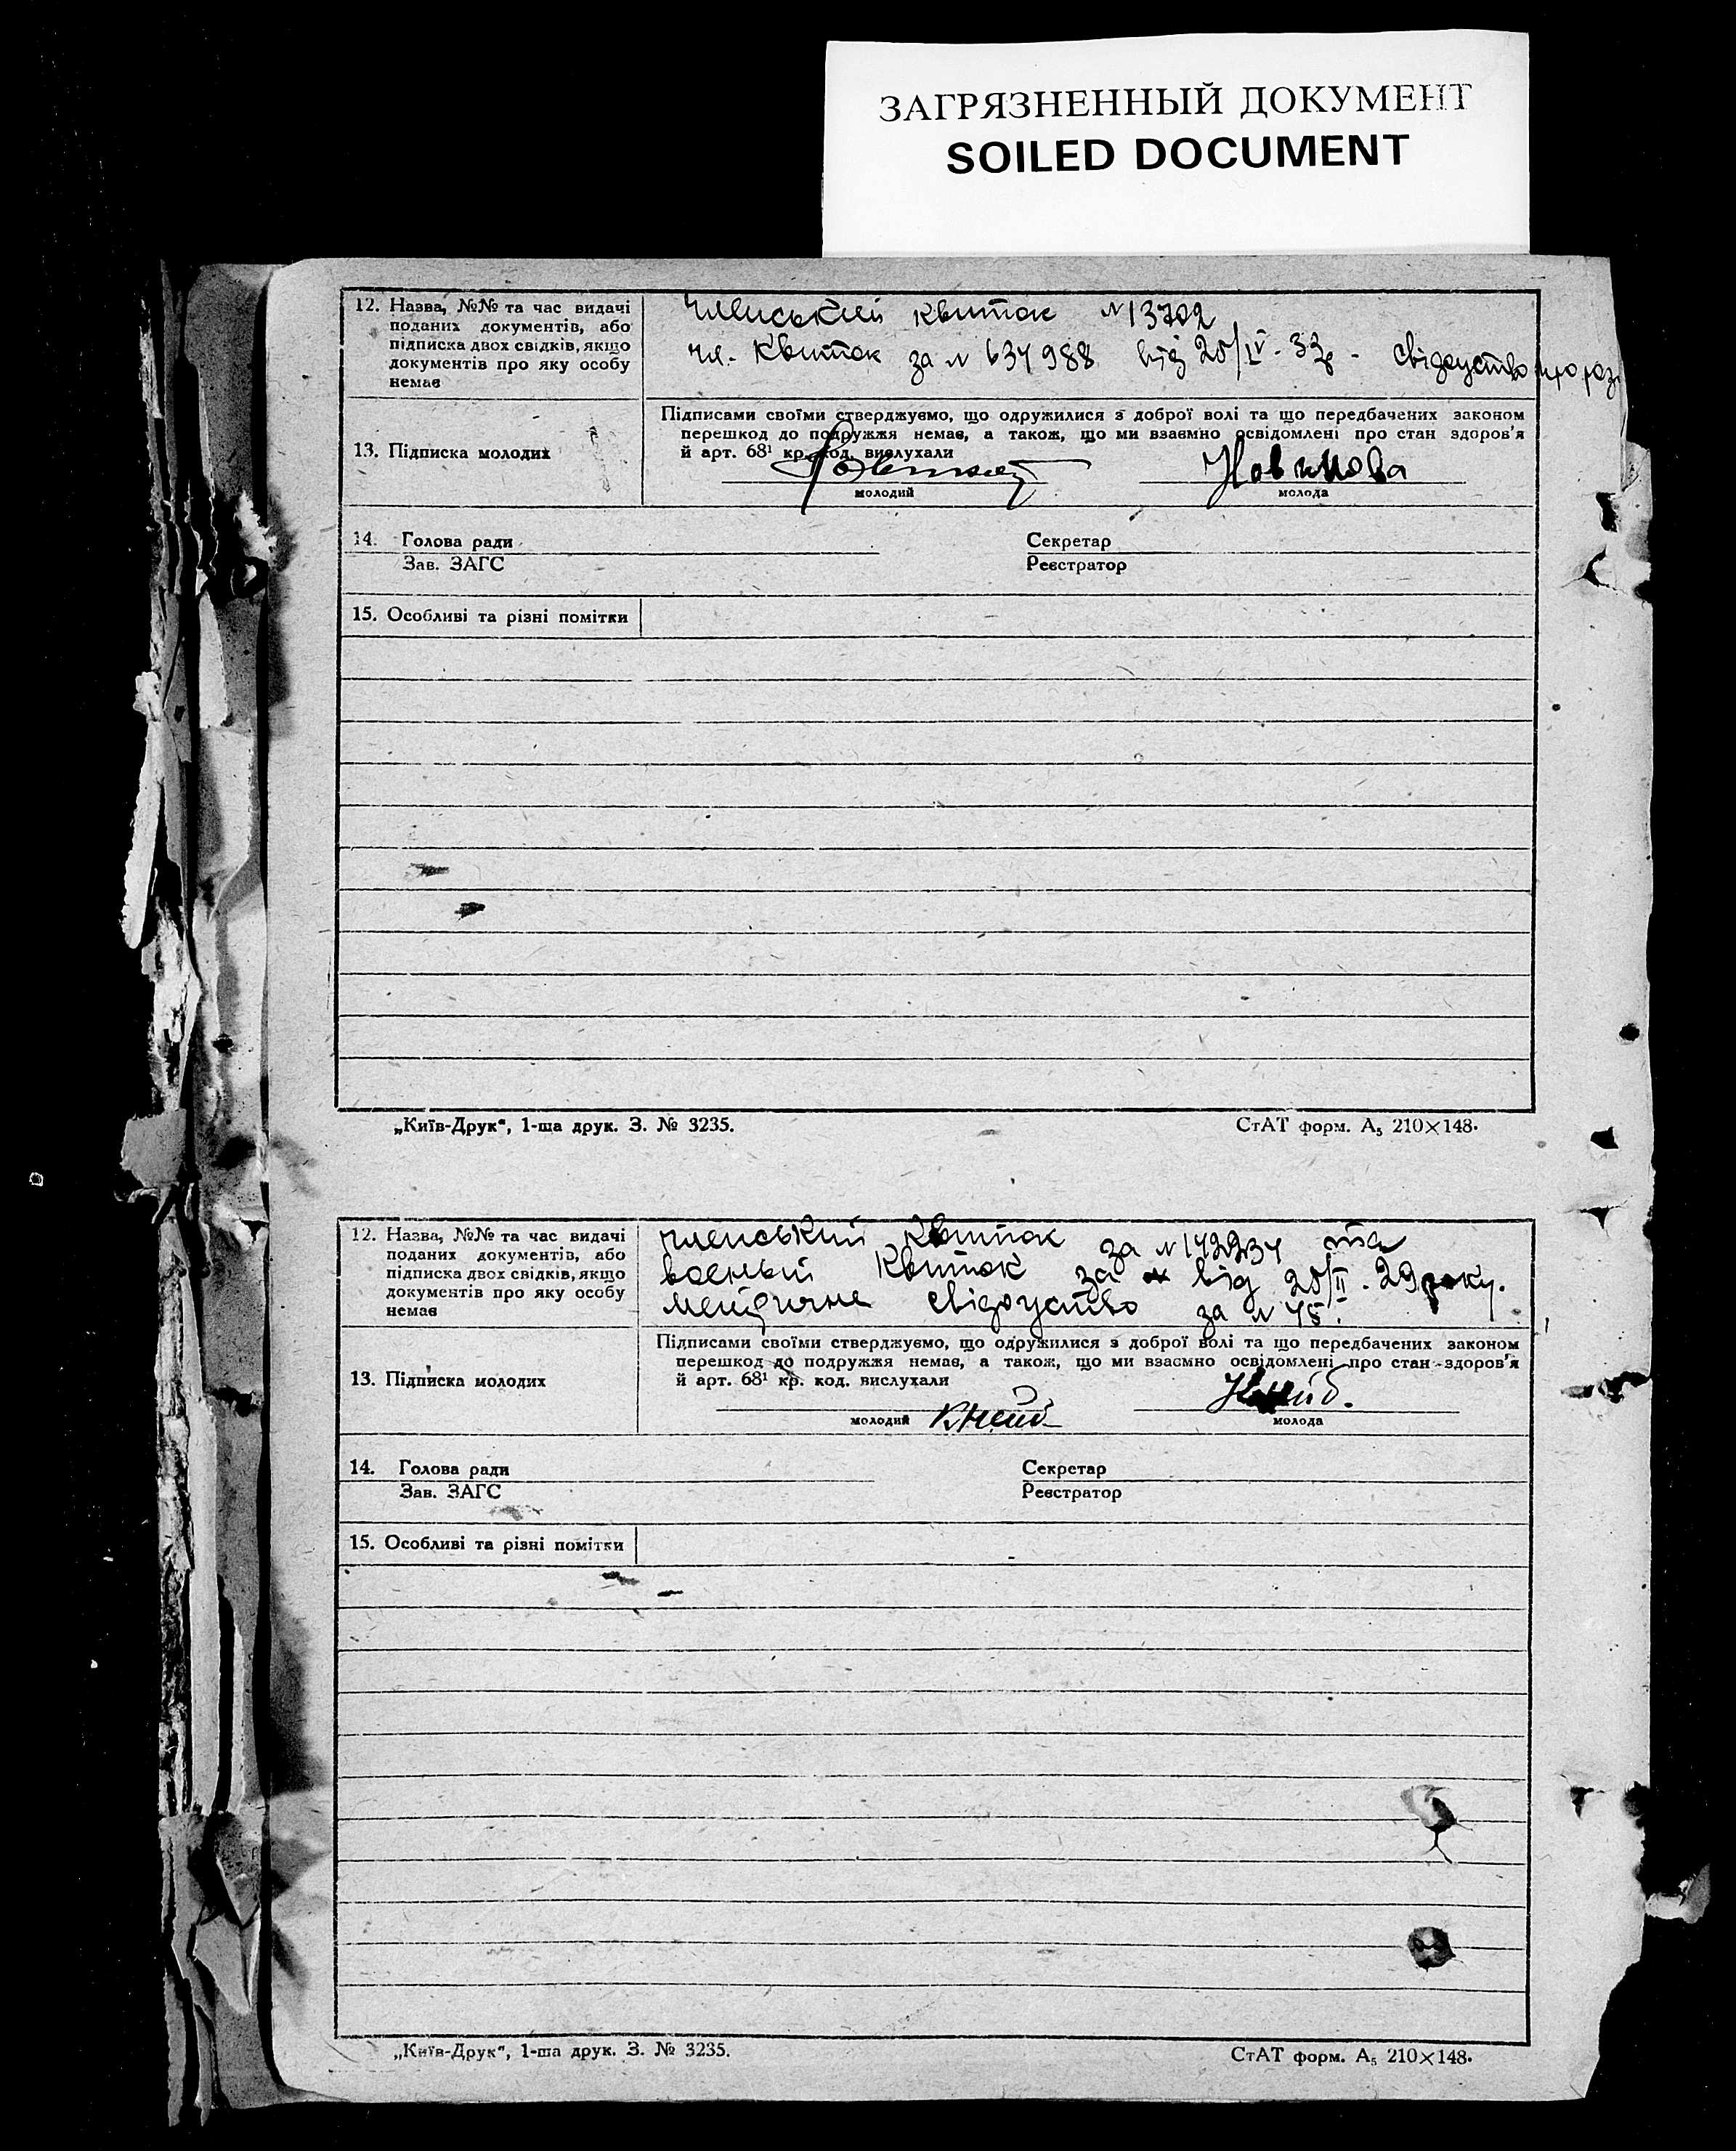 ЗАГРЯЗНЕННЫЙ ДОКУМЕНТ
SOILED DOCUMENT
12. Назва, №№ та час видачі
поданих документів, або
підписка двох свідків, якщо
документів про яку особу
немає
членський квиток №13702
чл. квиток за № 634988 від 20/IV-33р - свідоцтво про роз
13. Підписка молодих
Підписами своїми стверджуємо, що одружилися з доброї волі та що передбачених законом
перешкод до подружжя немає, а також, що ми взаємно освідомлені про стан здоров'я
й арт. 68¹ кр. код. вислухали
Новикова
молодий молода
14. Голова ради Секретар
Зав. ЗАГС Реєстратор
15. Особливі та різні помітки
„Київ-Друк“, 1-ша друк. З. № 3235. СтАТ форм. А₅ 210×148.
12. Назва, №№ та час видачі
поданих документів, або
підписка двох свідків, якщо
документів про яку особу
немає
членський квиток за № 142234 та
воєный квиток за від 20/II-29 року.
медичне свідоцтво за № 45.
13. Підписка молодих
Підписами своїми стверджуємо, що одружилися з доброї волі та що передбачених законом
перешкод до подружжя немає, а також, що ми взаємно освідомлені про стан здоров'я
й арт. 68¹ кр. код. вислухали
молодий молода
14. Голова ради Секретар
Зав. ЗАГС Реєстратор
15. Особливі та різні помітки
„Київ-Друк“, 1-ша друк. З. № 3235. СтАТ форм. А₅ 210×148.